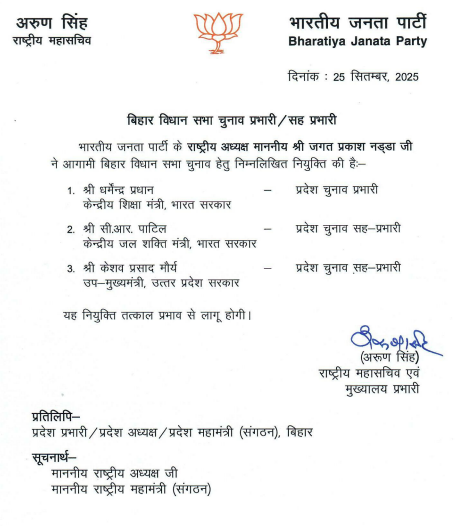 अरुण सिंह
राष्ट्रीय महासचिव
भारतीय जनता पार्टी
Bharatiya Janata Party
दिनांक : 25 सितम्बर, 2025
बिहार विधान सभा चुनाव प्रभारी/सह प्रभारी
भारतीय जनता पार्टी के राष्ट्रीय अध्यक्ष माननीय श्री जगत प्रकाश नड्डा जी
ने आगामी बिहार विधान सभा चुनाव हेतु निम्नलिखित नियुक्ति की है:–
1. श्री धर्मेन्द्र प्रधान – प्रदेश चुनाव प्रभारी
केन्द्रीय शिक्षा मंत्री, भारत सरकार
2. श्री सी.आर. पाटिल – प्रदेश चुनाव सह–प्रभारी
केन्द्रीय जल शक्ति मंत्री, भारत सरकार
3. श्री केशव प्रसाद मौर्य – प्रदेश चुनाव सह–प्रभारी
उप–मुख्यमंत्री, उत्तर प्रदेश सरकार
यह नियुक्ति तत्काल प्रभाव से लागू होगी।
(अरूण सिंह)
राष्ट्रीय महासचिव एवं
मुख्यालय प्रभारी
प्रतिलिपि–
प्रदेश प्रभारी/प्रदेश अध्यक्ष/प्रदेश महामंत्री (संगठन), बिहार
सूचनार्थ–
माननीय राष्ट्रीय अध्यक्ष जी
माननीय राष्ट्रीय महामंत्री (संगठन)